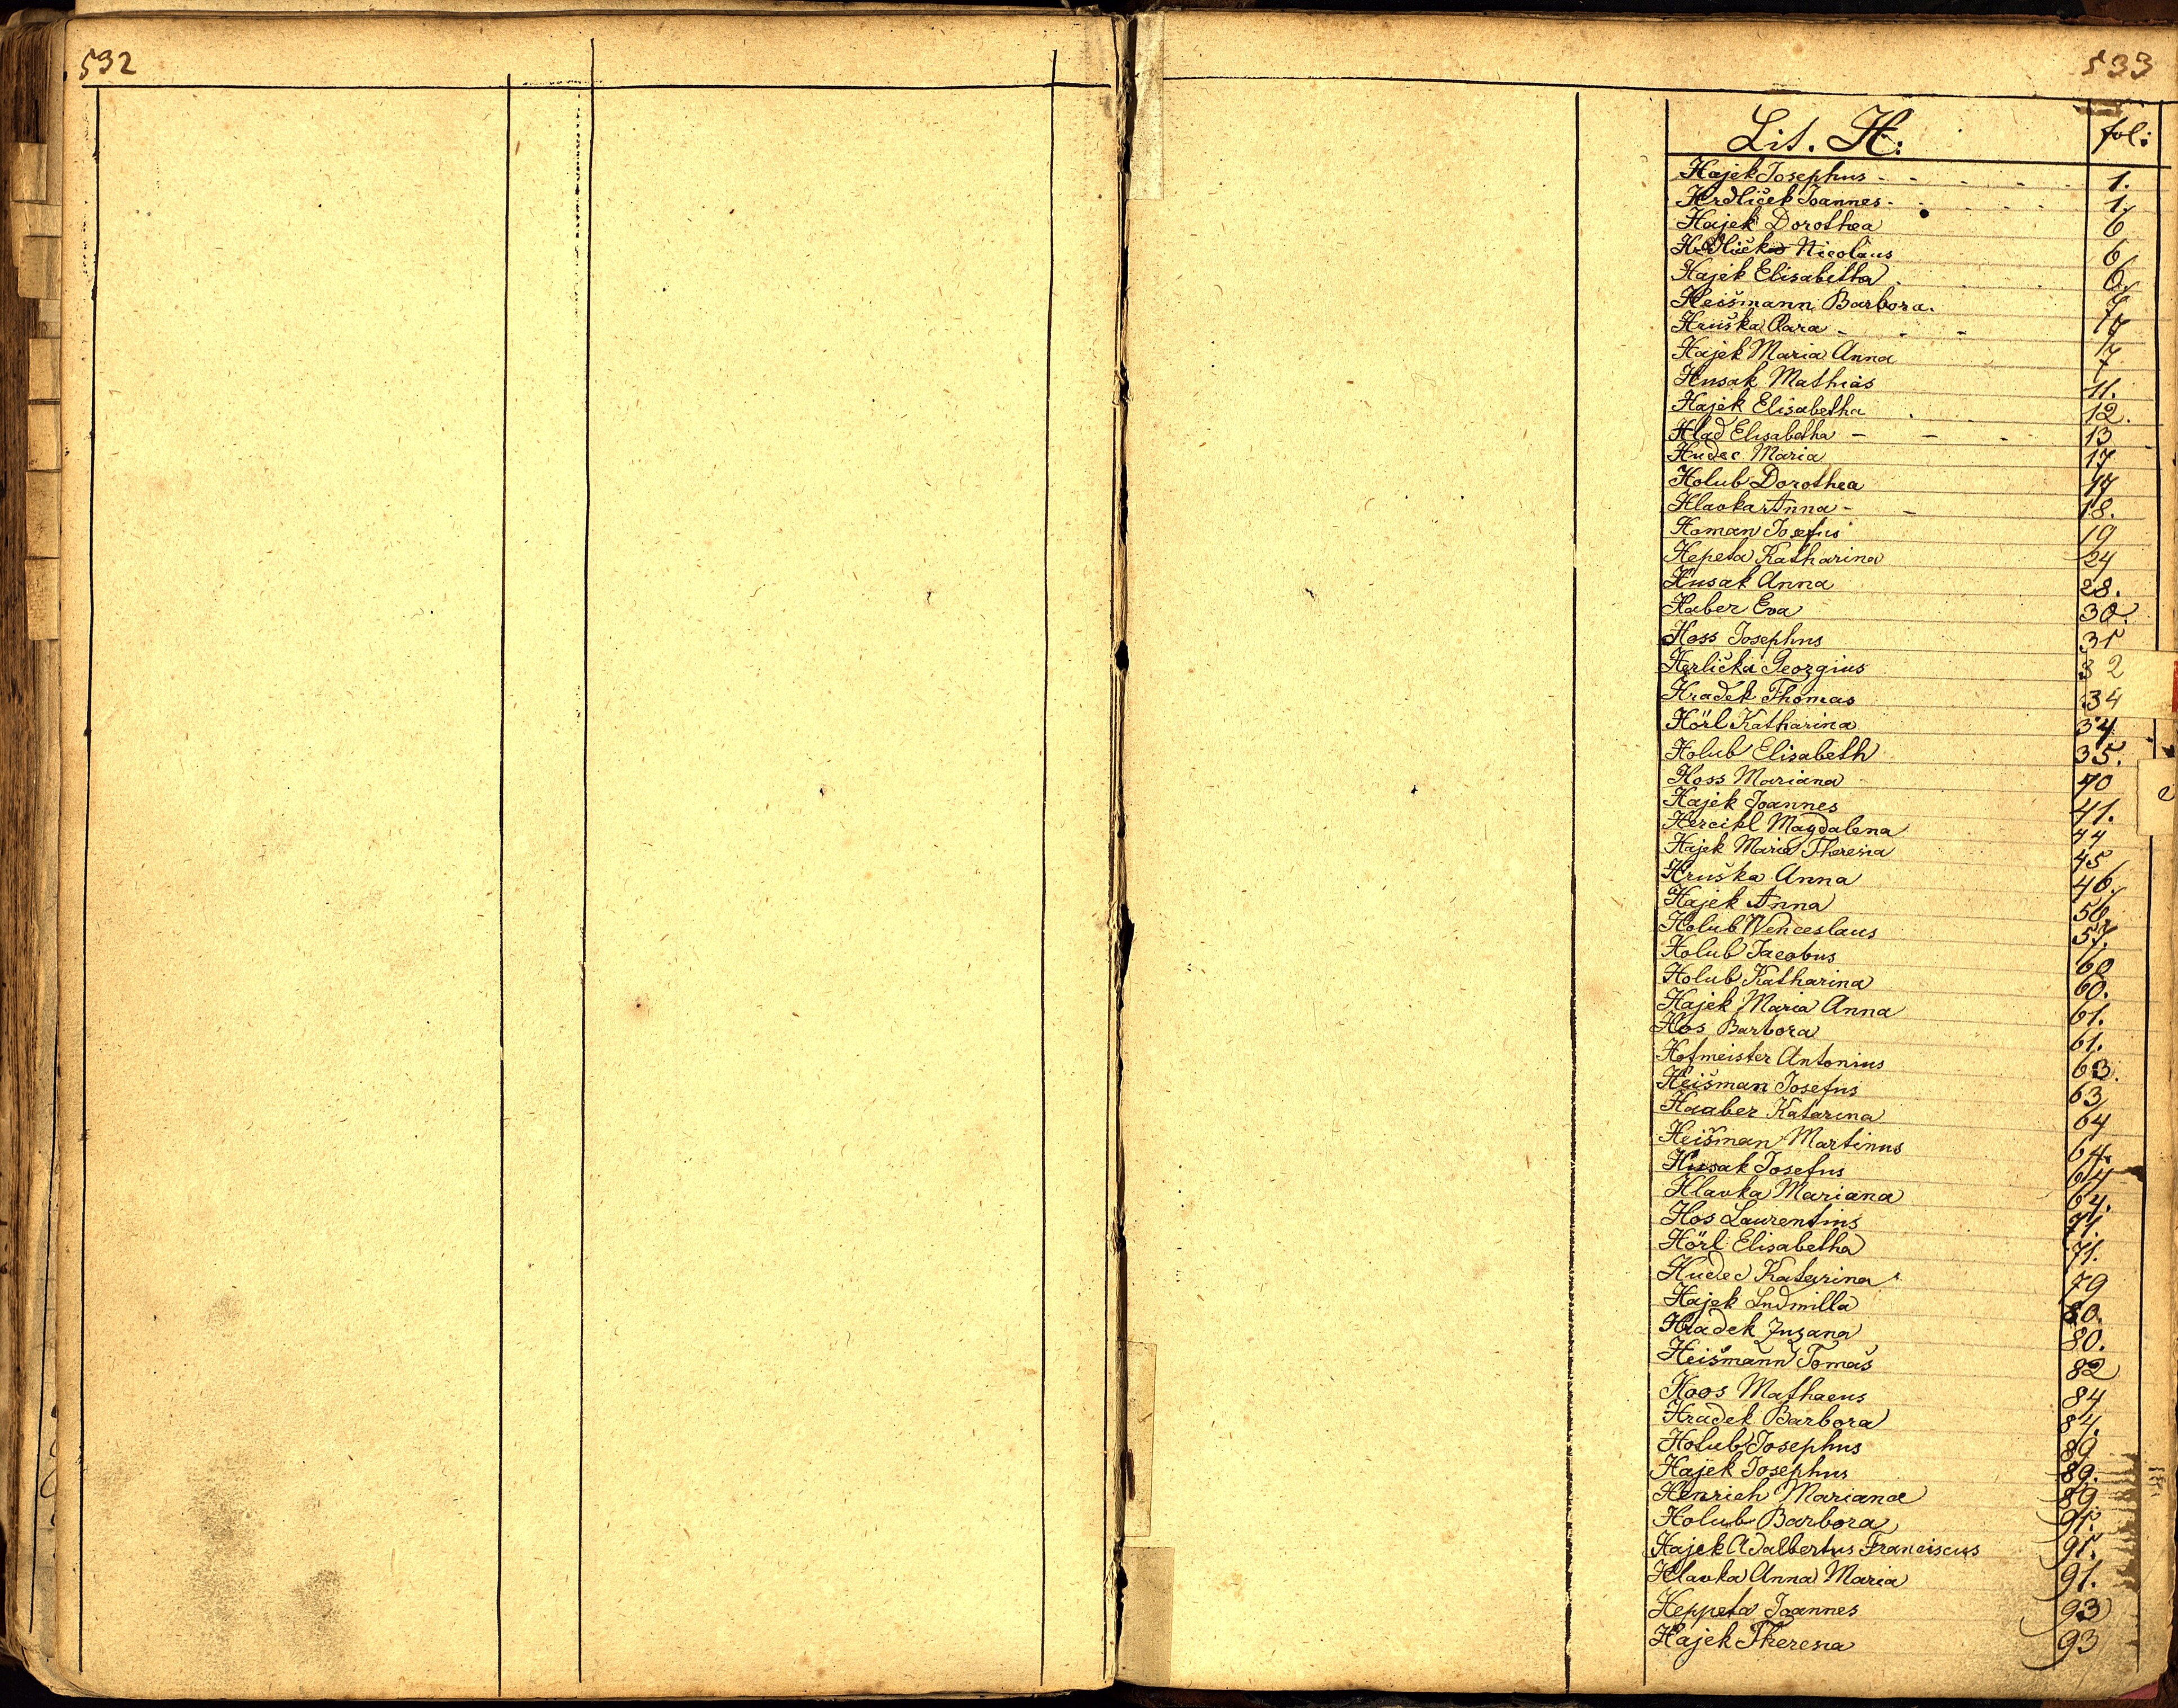 532
533
Lit. H: fol:
Hajek Josephus - - - - - 1.
Hrdliček Joannes - - - - 1.
Hajek Dorothea 6
Hrdlička Nicolaus 6
Hajek Elisabetha 6.
Heišmann Barbora. 7
Hruška Clara - - - 17
Hajek Maria Anna 7
Husak Mathias 11.
Hajek Elisabetha 12.
Hlad Elisabetha - - - 13
Hudec Maria 17
Holub Dorothea 17
Hlavka Anna - - 18.
Homan Josefus 19
Hepeta Katharina 24
Husak Anna 28.
Haber Eva 30.
Hoss Josephus 31
Herlička Georgius 32
Hradek Thomas 34
Hörl Katharina 34
Holub Elisabeth 35.
Hoss Mariana 40
Hajek Joannes 41.
Hercikl Magdalena 44
Hajek Maria Theresia 45
Hruška Anna 46.
Hajek Anna 56
Holub Wenceslaus 57.
Holub Jacobus 60
Holub Katharina 60.
Hajek Maria Anna 61.
Hos Barbora 61.
Hofmeister Antonius 63.
Heišman Josefus 63
Haaber Katarina 64
Heišman Martinus 64.
Husak Josefus 64
Hlavka Mariana 64.
Hos Laurentius 71.
Hörl Elisabetha 71.
Hudec Katarina 79
Hajek Ludmilla 80.
Hradek Zuzana 80.
Heišmann Tomaš 82
Hoos Mathaeus 84
Hradek Barbora 84.
Holub Josephus 89
Hajek Josephus 89.
Henrich Mariana 89
Holub Barbora 91.
Hajek Adalbertus Franciscus 91.
Hlavka Anna Maria 91.
Heppeta Joannes 93
Hajek Theresia 93